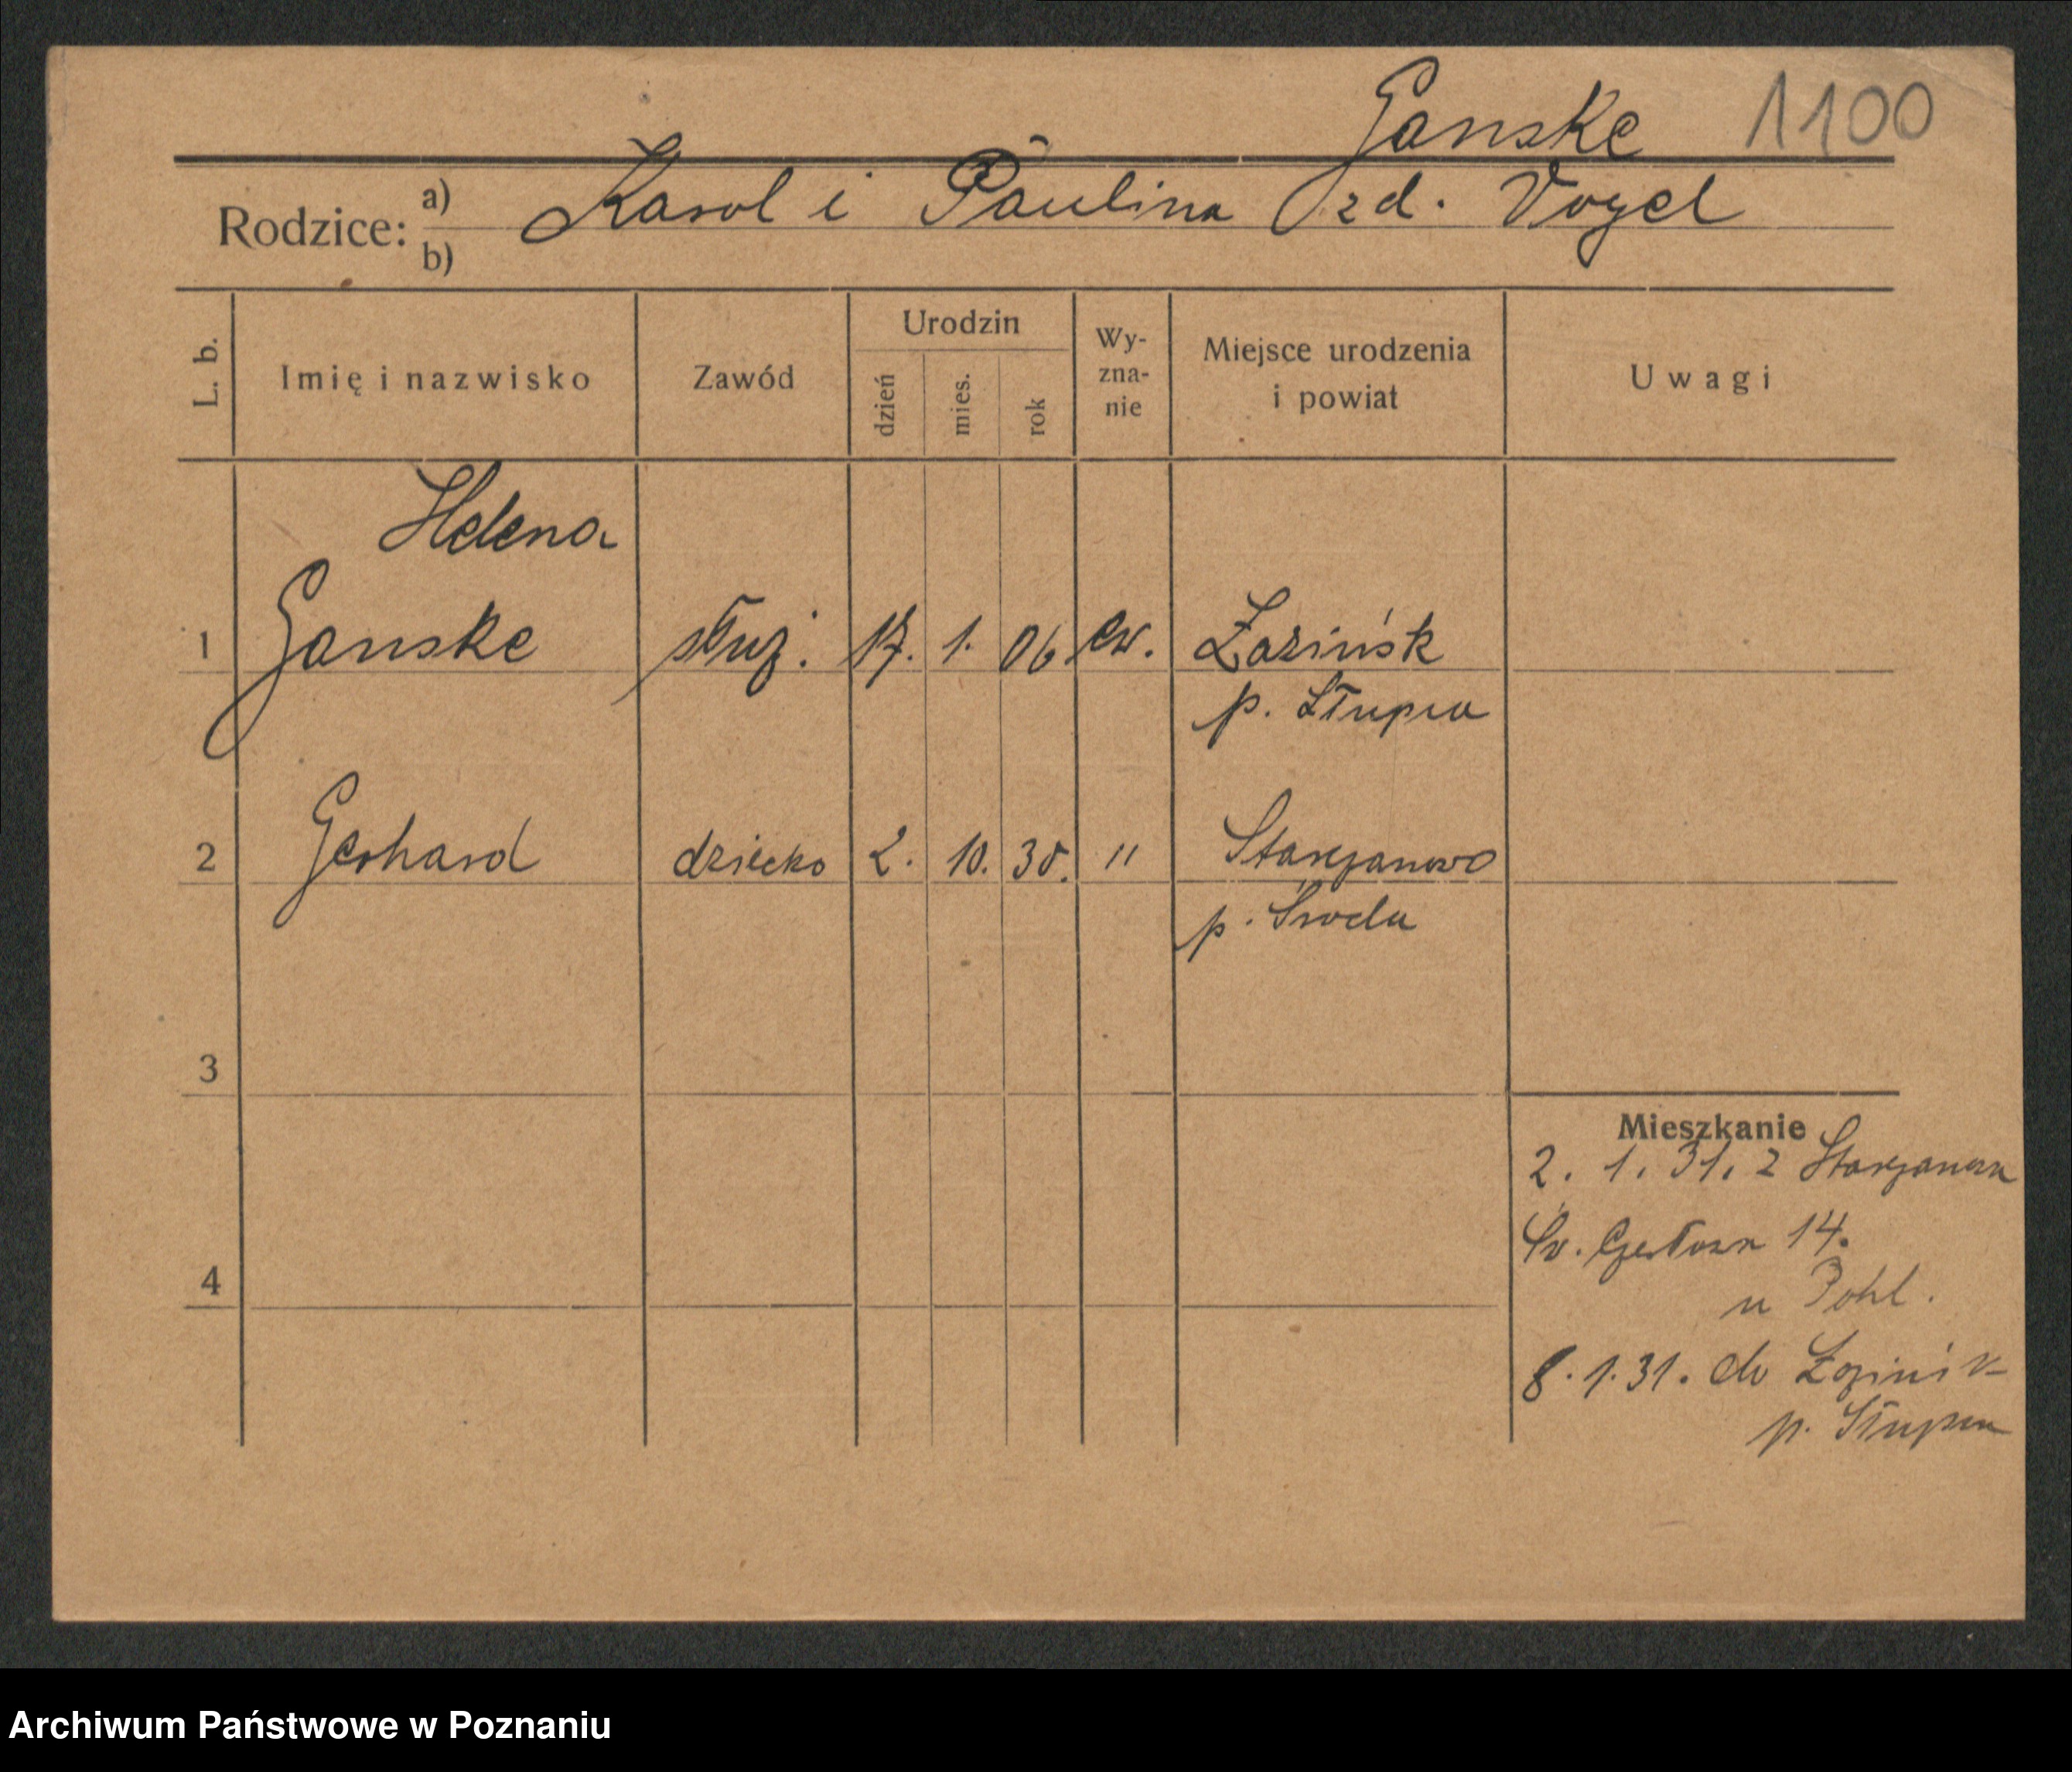 Ganske 1100
Rodzice: a) Karol i Paulina zd. Vogel
b)
L. b.
Imię i nazwisko
Zawód
Urodzin
dzień
mies.
rok
Wy-
zna-
nie
Miejsce urodzenia
i powiat
Uwagi
Helena
1 Ganske służ. 17. 1. 06 ew. Łazińsk
p. Słupca
2 Gerhard dziecko 2. 10. 30. " Starczanowo
p. Środa
3
Mieszkanie
2. 1. 31. z Starczanowa
Św. Czesława 14.
4
u Pohl.
8. 1. 31. do Łazińsk
p. Słupca
Archiwum Państwowe w Poznaniu